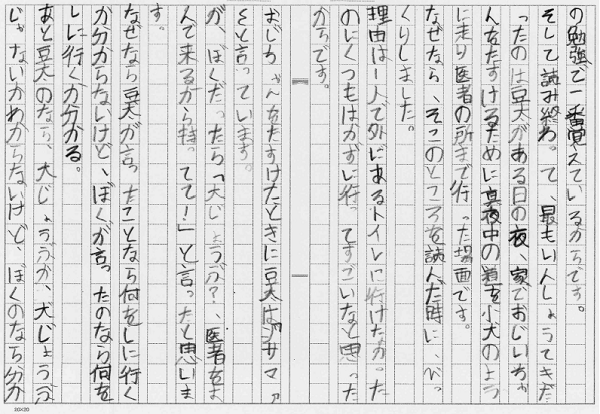 の勉強で一番覚えているからです。
そして読み終わって、最もいんしょうてきだ
ったのは豆太がある日の夜、家でおじいちゃ
んをたすけるために真夜中の道を小犬のよう
に走り医者の所まで行った場面です。
なぜなら、そこのところを読んだ時に、びっ
くりしました。
理由は一人で外にあるトイレに行けなかった
のにくつもはかずに行ってすごいなと思った
からです。
おじいちゃんをたすけたときに豆太は「ジサマァ
ッと言っています。
が、ぼくだったら「大じょうぶ?、医者をよ
んで来るから待ってて!」と言ったと思いま
す。
なぜなら豆太が言ったことなら何をしに行く
か分からないけど、ぼくが言ったのなら何を
しに行くか分かる。
あと豆太のなら、大じょうぶか、大じょうぶ
じゃないかわからないけど、ぼくのなら分か
20×20